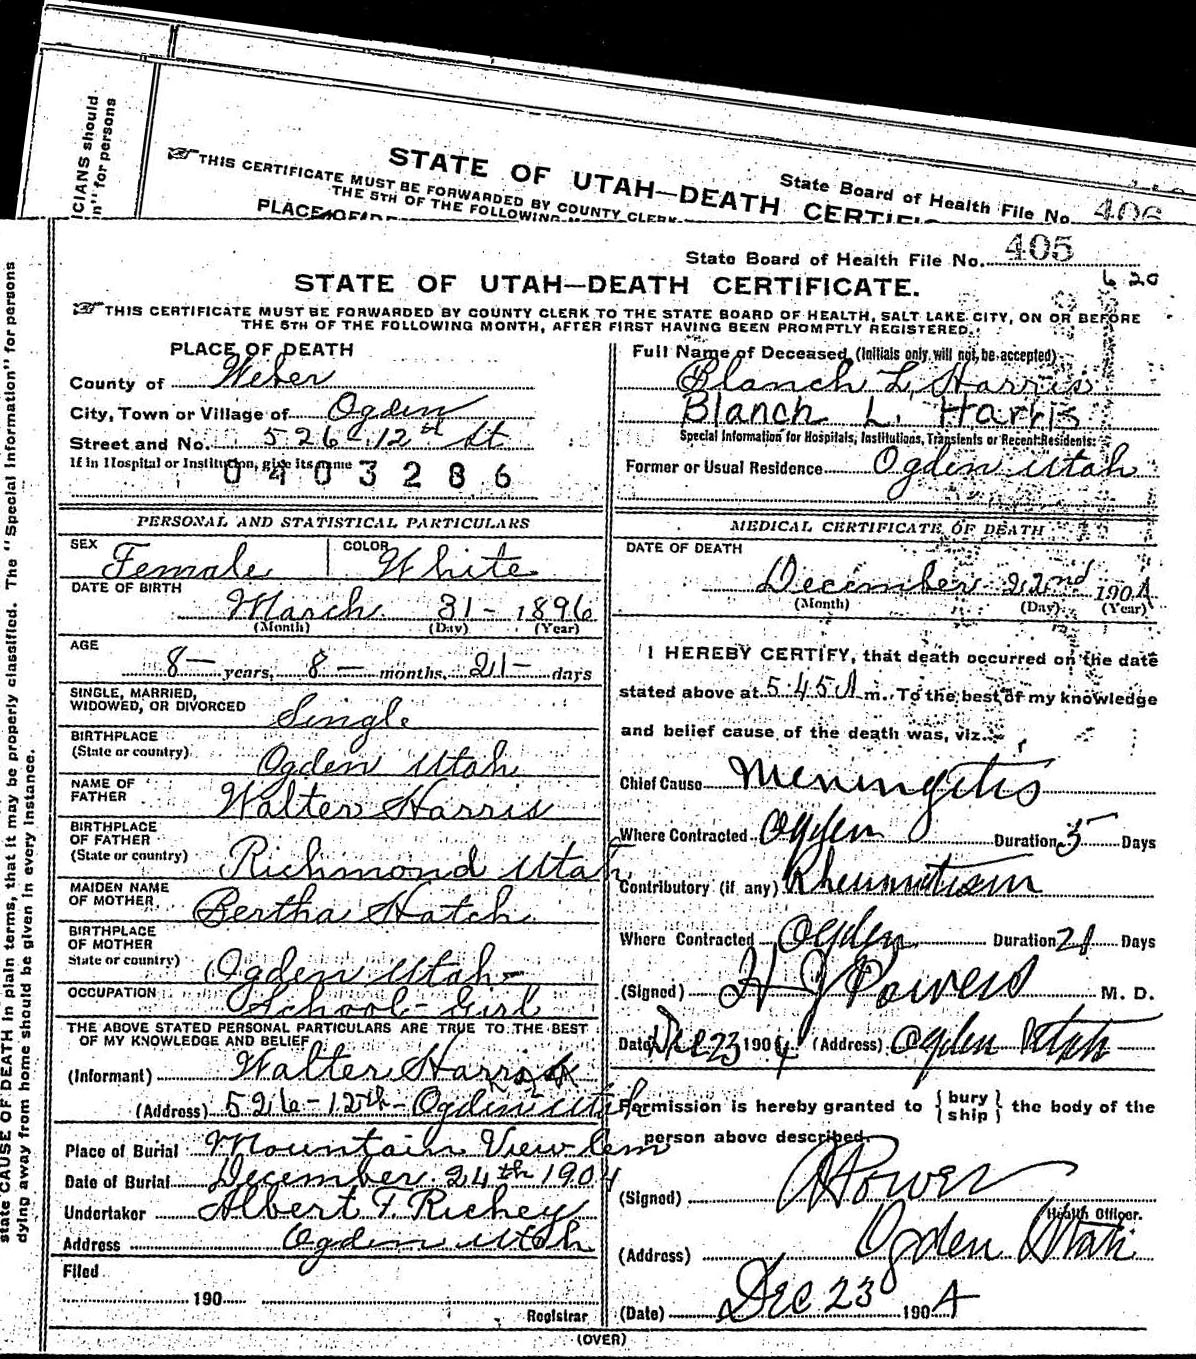 CIANS should
n" for persons
State Board of Health File No. 406
STATE OF UTAH—DEATH CERTIFIC
THIS CERTIFICATE MUST BE FORWARDED BY COUNTY CLERK
THE 5TH OF THE FOLLOWING MO
PLACE OF DE
state CAUSE OF DEATH in plain terms, that it may be properly classified. The "Special Information" for persons
dying away from home should be given in every instance.
State Board of Health File No. 405
6 20
STATE OF UTAH—DEATH CERTIFICATE.
THIS CERTIFICATE MUST BE FORWARDED BY COUNTY CLERK TO THE STATE BOARD OF HEALTH, SALT LAKE CITY, ON OR BEFORE
THE 5TH OF THE FOLLOWING MONTH, AFTER FIRST HAVING BEEN PROMPTLY REGISTERED.
PLACE OF DEATH
County of Weber
City, Town or Village of Ogden
Street and No. 526 12th St
If in Hospital or Institution, give its name
0403286
PERSONAL AND STATISTICAL PARTICULARS
SEX Female
COLOR White
DATE OF BIRTH
March 31 - 1896
(Month) (Day) (Year)
AGE
8 — years, 8 — months, 21 — days
SINGLE, MARRIED,
WIDOWED, OR DIVORCED Single
BIRTHPLACE
(State or country) Ogden Utah
NAME OF
FATHER Walter Harris
BIRTHPLACE
OF FATHER
(State or country) Richmond Utah
MAIDEN NAME
OF MOTHER Bertha Hatch
BIRTHPLACE
OF MOTHER
State or country) Ogden Utah -
OCCUPATION School - Girl
THE ABOVE STATED PERSONAL PARTICULARS ARE TRUE TO THE BEST
OF MY KNOWLEDGE AND BELIEF
(Informant) Walter Harris
(Address) 526 - 12th - Ogden Utah
Place of Burial Mountain View Cem
Date of Burial December 24th 1904
Undertaker Albert F. Richey
Address Ogden Utah
Filed
190
Registrar
Full Name of Deceased (Initials only will not be accepted)
Blanch L. Harris
Blanch L. Harris
Special Information for Hospitals, Institutions, Transients or Recent Residents:
Former or Usual Residence Ogden Utah
MEDICAL CERTIFICATE OF DEATH
DATE OF DEATH
December 22nd 1904
(Month) (Day) (Year)
I HEREBY CERTIFY, that death occurred on the date
stated above at 5.45 A m. To the best of my knowledge
and belief cause of the death was, viz.
Chief Cause Meningitis
Where Contracted Ogden Duration 5 Days
Contributory (if any) Rheumatism
Where Contracted Ogden Duration 21 Days
(Signed) H J Powers M. D.
Date Dec 23 1904 (Address) Ogden Utah
Permission is hereby granted to {bury ship} the body of the
person above described.
(Signed) Power
Health Officer.
(Address) Ogden Utah
(Date) Dec 23 1904
(OVER)